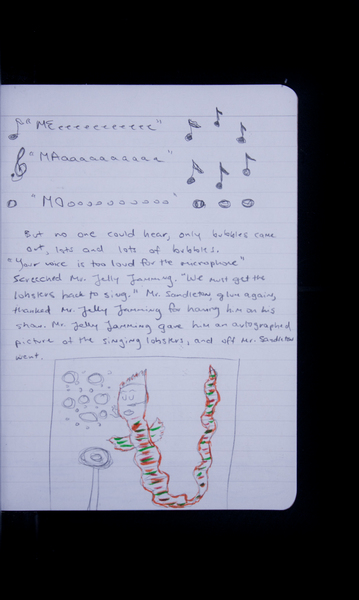 "MEeeeeeeeeeee"
"MAaaaaaaaaaa"
"MOooooooooooo"
But no one could hear, only bubbles came
out, lots and lots of bubbles.
"Your voice is too loud for the microphone"
Screeched Mr. Jelly Jamming. "We must get the
lobsters back to sing." Mr. Sandieton, glum again,
thanked Mr. Jelly Jamming for having him on his
show. Mr. Jelly Jamming gave him an autographed
picture of the singing lobsters, and off Mr. Sandieton
went.